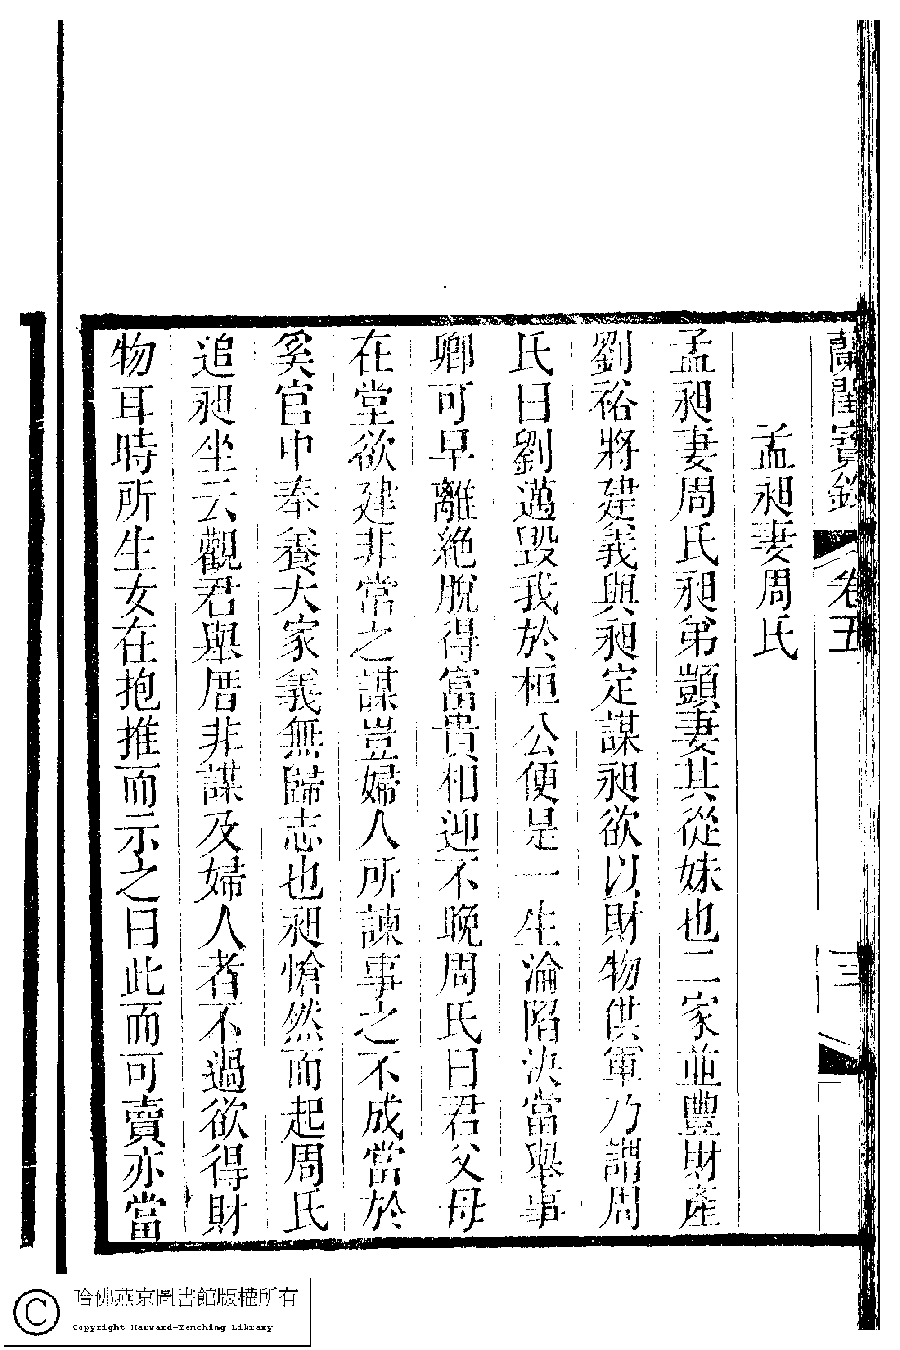 蘭閨寶錄 卷五 三
孟昶妻周氏
孟昶妻周氏昶弟顗妻其從妹也二家並豐財產
劉裕將建義與昶定謀昶欲以財物供軍乃謂周
氏曰劉邁毀我於桓公便是一生淪陷決當舉事
卿可早離絕脫得富貴相迎不晚周氏曰君父母
在堂欲建非常之謀豈婦人所諫事之不成當於
奚官中奉養大家義無歸志也昶愴然而起周氏
追昶坐云觀君舉厝非謀及婦人者不過欲得財
物耳時所生女在抱推而示之曰此而可賣亦當
哈佛燕京圖書館版權所有
Copyright Harvard-Yenching Library